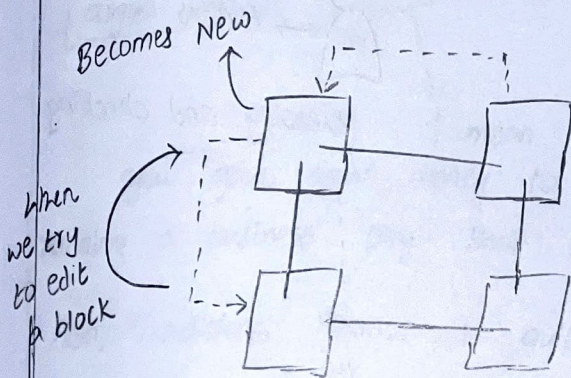 Becomes New
When
we try
to edit
a block